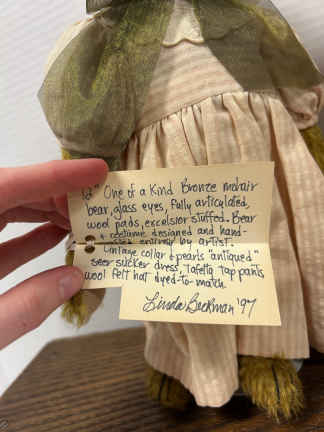 12" One of a Kind Bronze mohair
bear, glass eyes, fully articulated,
wool pads, excelsior stuffed. Bear
+ costume designed and hand-
entirely by artist.
Vintage collar & pearls "antiqued"
seer sucker dress, Tafetta tap pants
wool felt hat dyed-to-match.
Linda Beckman '97